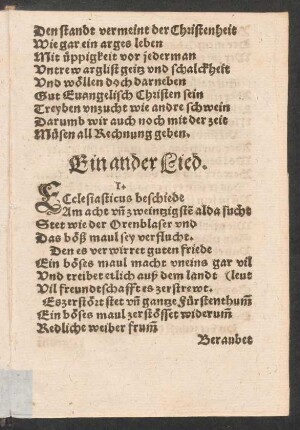 Den standt vermeint der Christenheit
Wie gar ein arges leben
Mit üppigkeit vor jederman
Vntrew arglist geitz vnd schalckheit
Vnd wöllen doch darneben
Gut Euangelisch Christen sein
Treyben vnzucht wie andre schwein
Darumb wir auch noch mit der zeit
Müsen all Rechnung geben.
Ein ander Lied.
1.
ECclesiasticus beschiede
Am acht vñ zweintzigstẽ alda sucht
Stet wie der Orenblaser vnd
Das böß maul sey verflucht.
Den es verwirret guten friede
Ein böses maul macht vneins gar vil
Vnd treibet etlich auß dem landt (leut
Vil freundtschafft es zerstrewt.
Es zerstöret stet vñ gantze Fürstenthum̃
Ein böses maul zerstösset widerum̃
Redlicht weiber frum̃
Beraubet